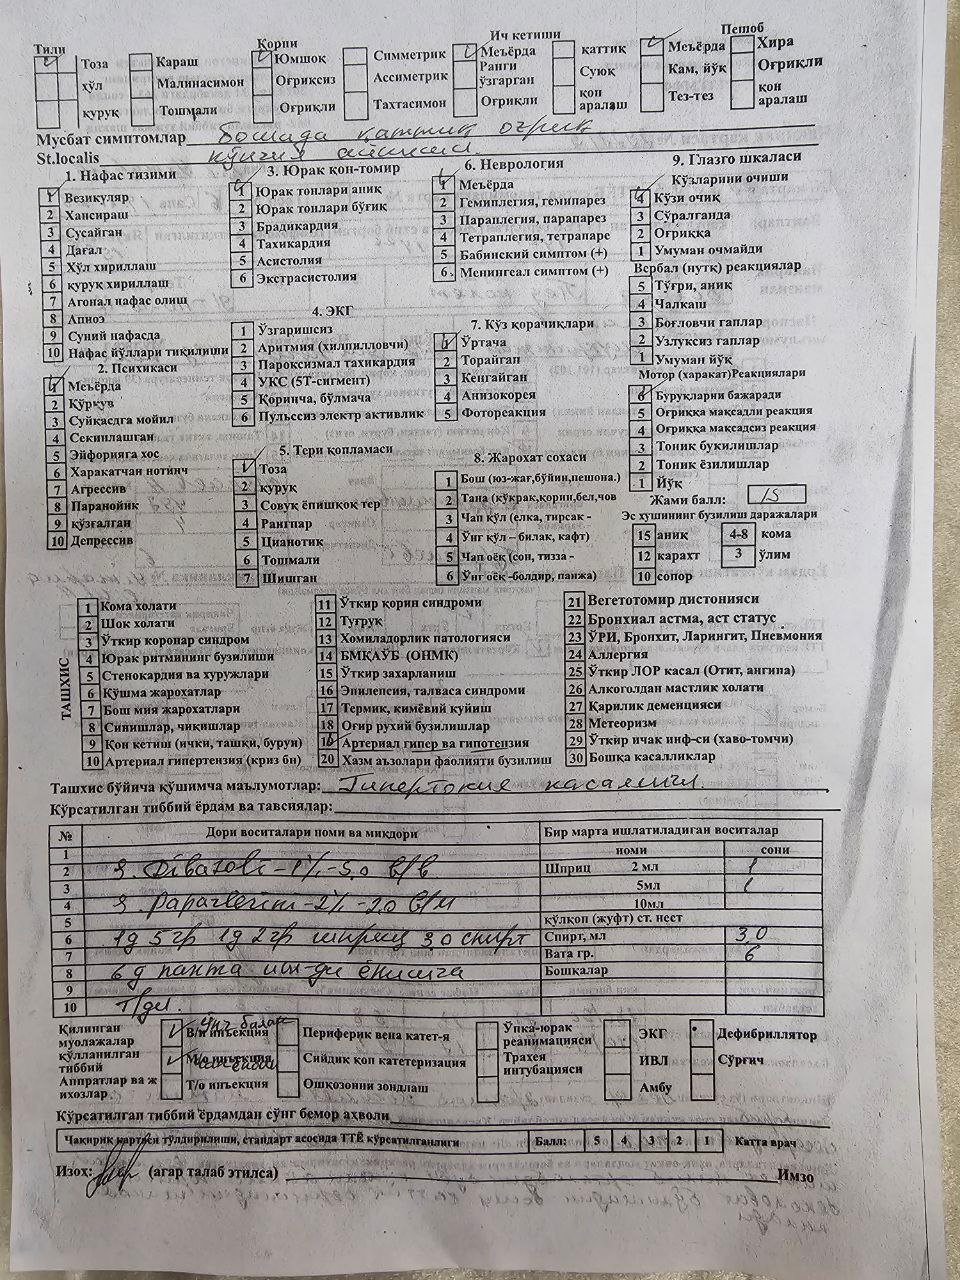 Тили Корни Ич кетиши Пешоб
Тоза Қараш Юмшоқ Симметрик Меъёрда қаттиқ Меъёрда Хира
хўл Малинасимон Оғриксиз Ассиметрик Ранги ўзгарган Суюқ Кам, йўқ Оғриқли
қуруқ Тошмали Оғриқли Тахтасимон Оғриқли қон аралаш Тез-тез қон аралаш
Мусбат симптомлар бошида қаттиқ оғриқ
St.localis кўнгил айниши.
1. Нафас тизими
1 Везикуляр
2 Хансираш
3 Сусайган
4 Дағал
5 Хўл хириллаш
6 қуруқ хириллаш
7 Агонал нафас олиш
8 Апноэ
9 Суний нафасда
10 Нафас йўллари тиқилиши
2. Психикаси
1 Меъёрда
2 Қўрқув
3 Суйқасдга мойил
4 Секинлашган
5 Эйфорияга хос
6 Харакатчан нотинч
7 Агрессив
8 Паранойик
9 қўзғалган
10 Депрессив
3. Юрак қон-томир
1 Юрак тонлари аниқ
2 Юрак тонлари бўғиқ
3 Брадикардия
4 Тахикардия
5 Асистолия
6 Экстрасистолия
4. ЭКГ
1 Ўзгаришсиз
2 Аритмия (хилпилловчи)
3 Пароксизмал тахикардия
4 УКС (5Т-сигмент)
5 Қоринча, бўлмача
6 Пульссиз электр активлик
5. Тери қопламаси
1 Тоза
2 қуруқ
3 Совуқ ёпишкоқ тер
4 Рангпар
5 Цианотик
6 Тошмали
7 Шишган
6. Неврология
1 Меъёрда
2 Гемиплегия, гемипарез
3 Параплегия, парапарез
4 Тетраплегия, тетрапаре
5 Бабинский симптом (+)
6 Менингеал симптом (+)
7. Кўз қорачиқлари
1 Ўртача
2 Торайган
3 Кенгайган
4 Анизокорея
5 Фотореакция
8. Жарохат сохаси
1 Бош (юз-жағ,бўйин,пешона.)
2 Тана (кўкрак,корин,бел,чов
3 Чап қўл (елка, тирсак -
4 Ўнг қўл – билак, кафт)
5 Чап оёқ (сон, тизза -
6 Ўнг оёқ -болдир, панжа)
9. Глазго шкаласи
Кўзларини очиши
4 Кўзи очиқ
3 Сўралганда
2 Оғриққа
1 Умуман очмайди
Вербал (нутқ) реакциялар
5 Тўғри, аниқ
4 Чалкаш
3 Боғловчи гаплар
2 Узлуксиз гаплар
1 Умуман йўқ
Мотор (харакат)Реакциялари
6 Буруқларни бажаради
5 Оғриққа мақсадли реакция
4 Оғриққа мақсадсиз реакция
3 Тоник букилишлар
2 Тоник ёзилишлар
1 Йўқ
Жами балл: 15
Эс хушининг бузилиш даражалари
15 аниқ 4-8 кома
12 карахт 3 ўлим
10 сопор
ТАШХИС
1 Кома холати
2 Шок холати
3 Ўткир коронар синдром
4 Юрак ритмининг бузилиши
5 Стенокардия ва хуружлари
6 Қўшма жарохатлар
7 Бош мия жарохатлари
8 Синишлар, чиқишлар
9 Қон кетиш (ички, ташқи, бурун)
10 Артериал гипертензия (криз бн)
11 Ўткир қорин синдроми
12 Туғруқ
13 Хомиладорлик патологияси
14 БМҚАЎБ (ОНМК)
15 Ўткир захарланиш
16 Эпилепсия, талваса синдроми
17 Термик, кимёвий қуйиш
18 Оғир рухий бузилишлар
19 Артериал гипер ва гипотензия
20 Хазм аъзолари фаолияти бузилиш
21 Вегетотомир дистонияси
22 Бронхиал астма, аст статус
23 ЎРИ, Бронхит, Ларингит, Пневмония
24 Аллергия
25 Ўткир ЛОР касал (Отит, ангина)
26 Алкоголдан мастлик холати
27 Қарилик деменцияси
28 Метеоризм
29 Ўткир ичак инф-си (хаво-томчи)
30 Бошқа касалликлар
Ташхис бўйича қўшимча маълумотлар: Гипертония касаллиги.
Кўрсатилган тиббий ёрдам ва тавсиялар:
№ Дори воситалари номи ва миқдори Бир марта ишлатиладиган воситалар
1 номи сони
2 S. Dibazoli – 1% – 5.0 в/в Шприц 2 мл 1
3 5мл 1
4 S. Papaverini – 2% – 2.0 в/м 10мл
5 қўлқоп (жуфт) ст. нест
6 1д 5гр 1д 2гр шприц 3.0 спирт Спирт, мл 3,0
7 Вата гр. 6
8 6 д пахта Бошкалар
9
10
Қилинган муолажалар қўлланилган тиббий Аппратлар ва жихозлар
В/и инъекция Периферик вена катет-я Ўпка-юрак реанимацияси ЭКГ Дефибриллятор
М/о инъекция Сийдик қоп катетеризация Трахея интубацияси ИВЛ Сўрғич
Т/о инъекция Ошқозонни зондлаш Амбу
Кўрсатилган тиббий ёрдамдан сўнг бемор ахволи
Чақириқ картаси тўлдирилиши, стандарт асосида ТТЁ кўрсатилганлиги Балл: 5 4 3 2 1 Катта врач
Изоҳ: (агар талаб этилса) Имзо